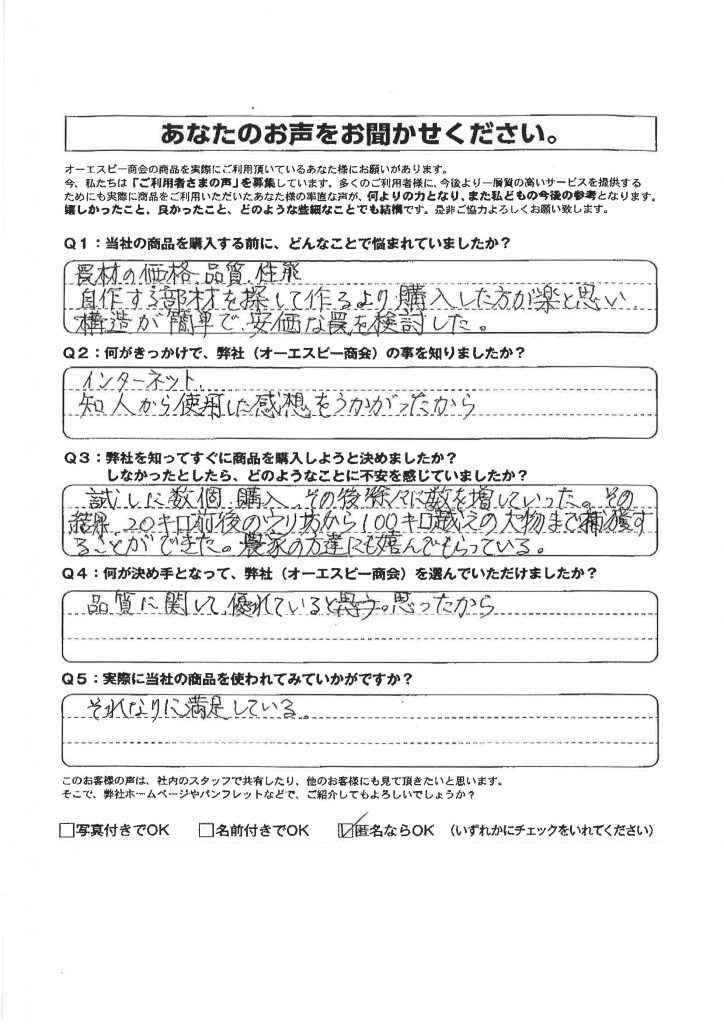 あなたのお声をお聞かせください。
オーエスピー商会の商品を実際にご利用頂いているあなた様にお願いがあります。
今、私たちは「ご利用者さまの声」を募集しています。多くのご利用者様に、今後より一層質の高いサービスを提供する
ためにも実際に商品をご利用いただいたあなた様の率直な声が、何よりの力となり、また私どもの今後の参考となります。
嬉しかったこと、良かったこと、どのような些細なことでも結構です。是非ご協力よろしくお願い致します。
Q1：当社の商品を購入する前に、どんなことで悩まれていましたか？
罠材の価格、品質、性能
自作する部材を探して作るより購入した方が楽と思い
構造が簡単で、安価な罠を検討した。
Q2：何がきっかけで、弊社（オーエスピー商会）の事を知りましたか？
インターネット、
知人から使用した感想をうかがったから
Q3：弊社を知ってすぐに商品を購入しようと決めましたか？
しなかったとしたら、どのようなことに不安を感じていましたか？
試しに数個、購入、その後徐々に数を増していった。その
結果、20キロ前後のウリ坊から100キロ越えの大物まで捕獲す
ることができた。農家の方達にも喜んでもらっている。
Q4：何が決め手となって、弊社（オーエスピー商会）を選んでいただけましたか？
品質に関して、優れていると思う。思ったから
Q5：実際に当社の商品を使われてみていかがですか？
それなりに満足している。
このお客様の声は、社内のスタッフで共有したり、他のお客様にも見て頂きたいと思います。
そこで、弊社ホームページやパンフレットなどで、ご紹介してもよろしいでしょうか？
□写真付きでOK　□名前付きでOK　☑匿名ならOK　（いずれかにチェックをいれてください）